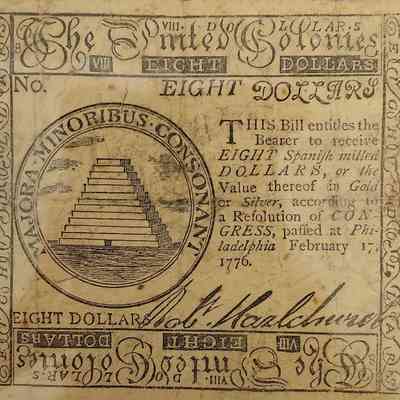 VIII·DOLLARS·
The United Colonies
VIII EIGHT DOLLARS
No. EIGHT DOLLARS
MAJORA·MINORIBUS·CONSONANT
THIS Bill entitles the
Bearer to receive
EIGHT Spanish milled
DOLLARS, or the
Value thereof in Gold
or Silver, according to
a Resolution of CON-
GRESS, passed at Phi-
ladelphia February 17,
1776.
EIGHT DOLLARS
EIGHT VIII
DOLLARS
The United Colonies
VIII·DOLLARS·